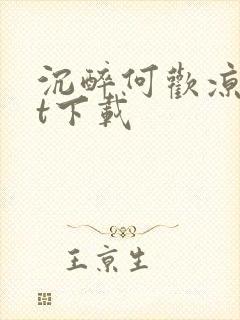 沉醉何歡涼
t下載
王京生